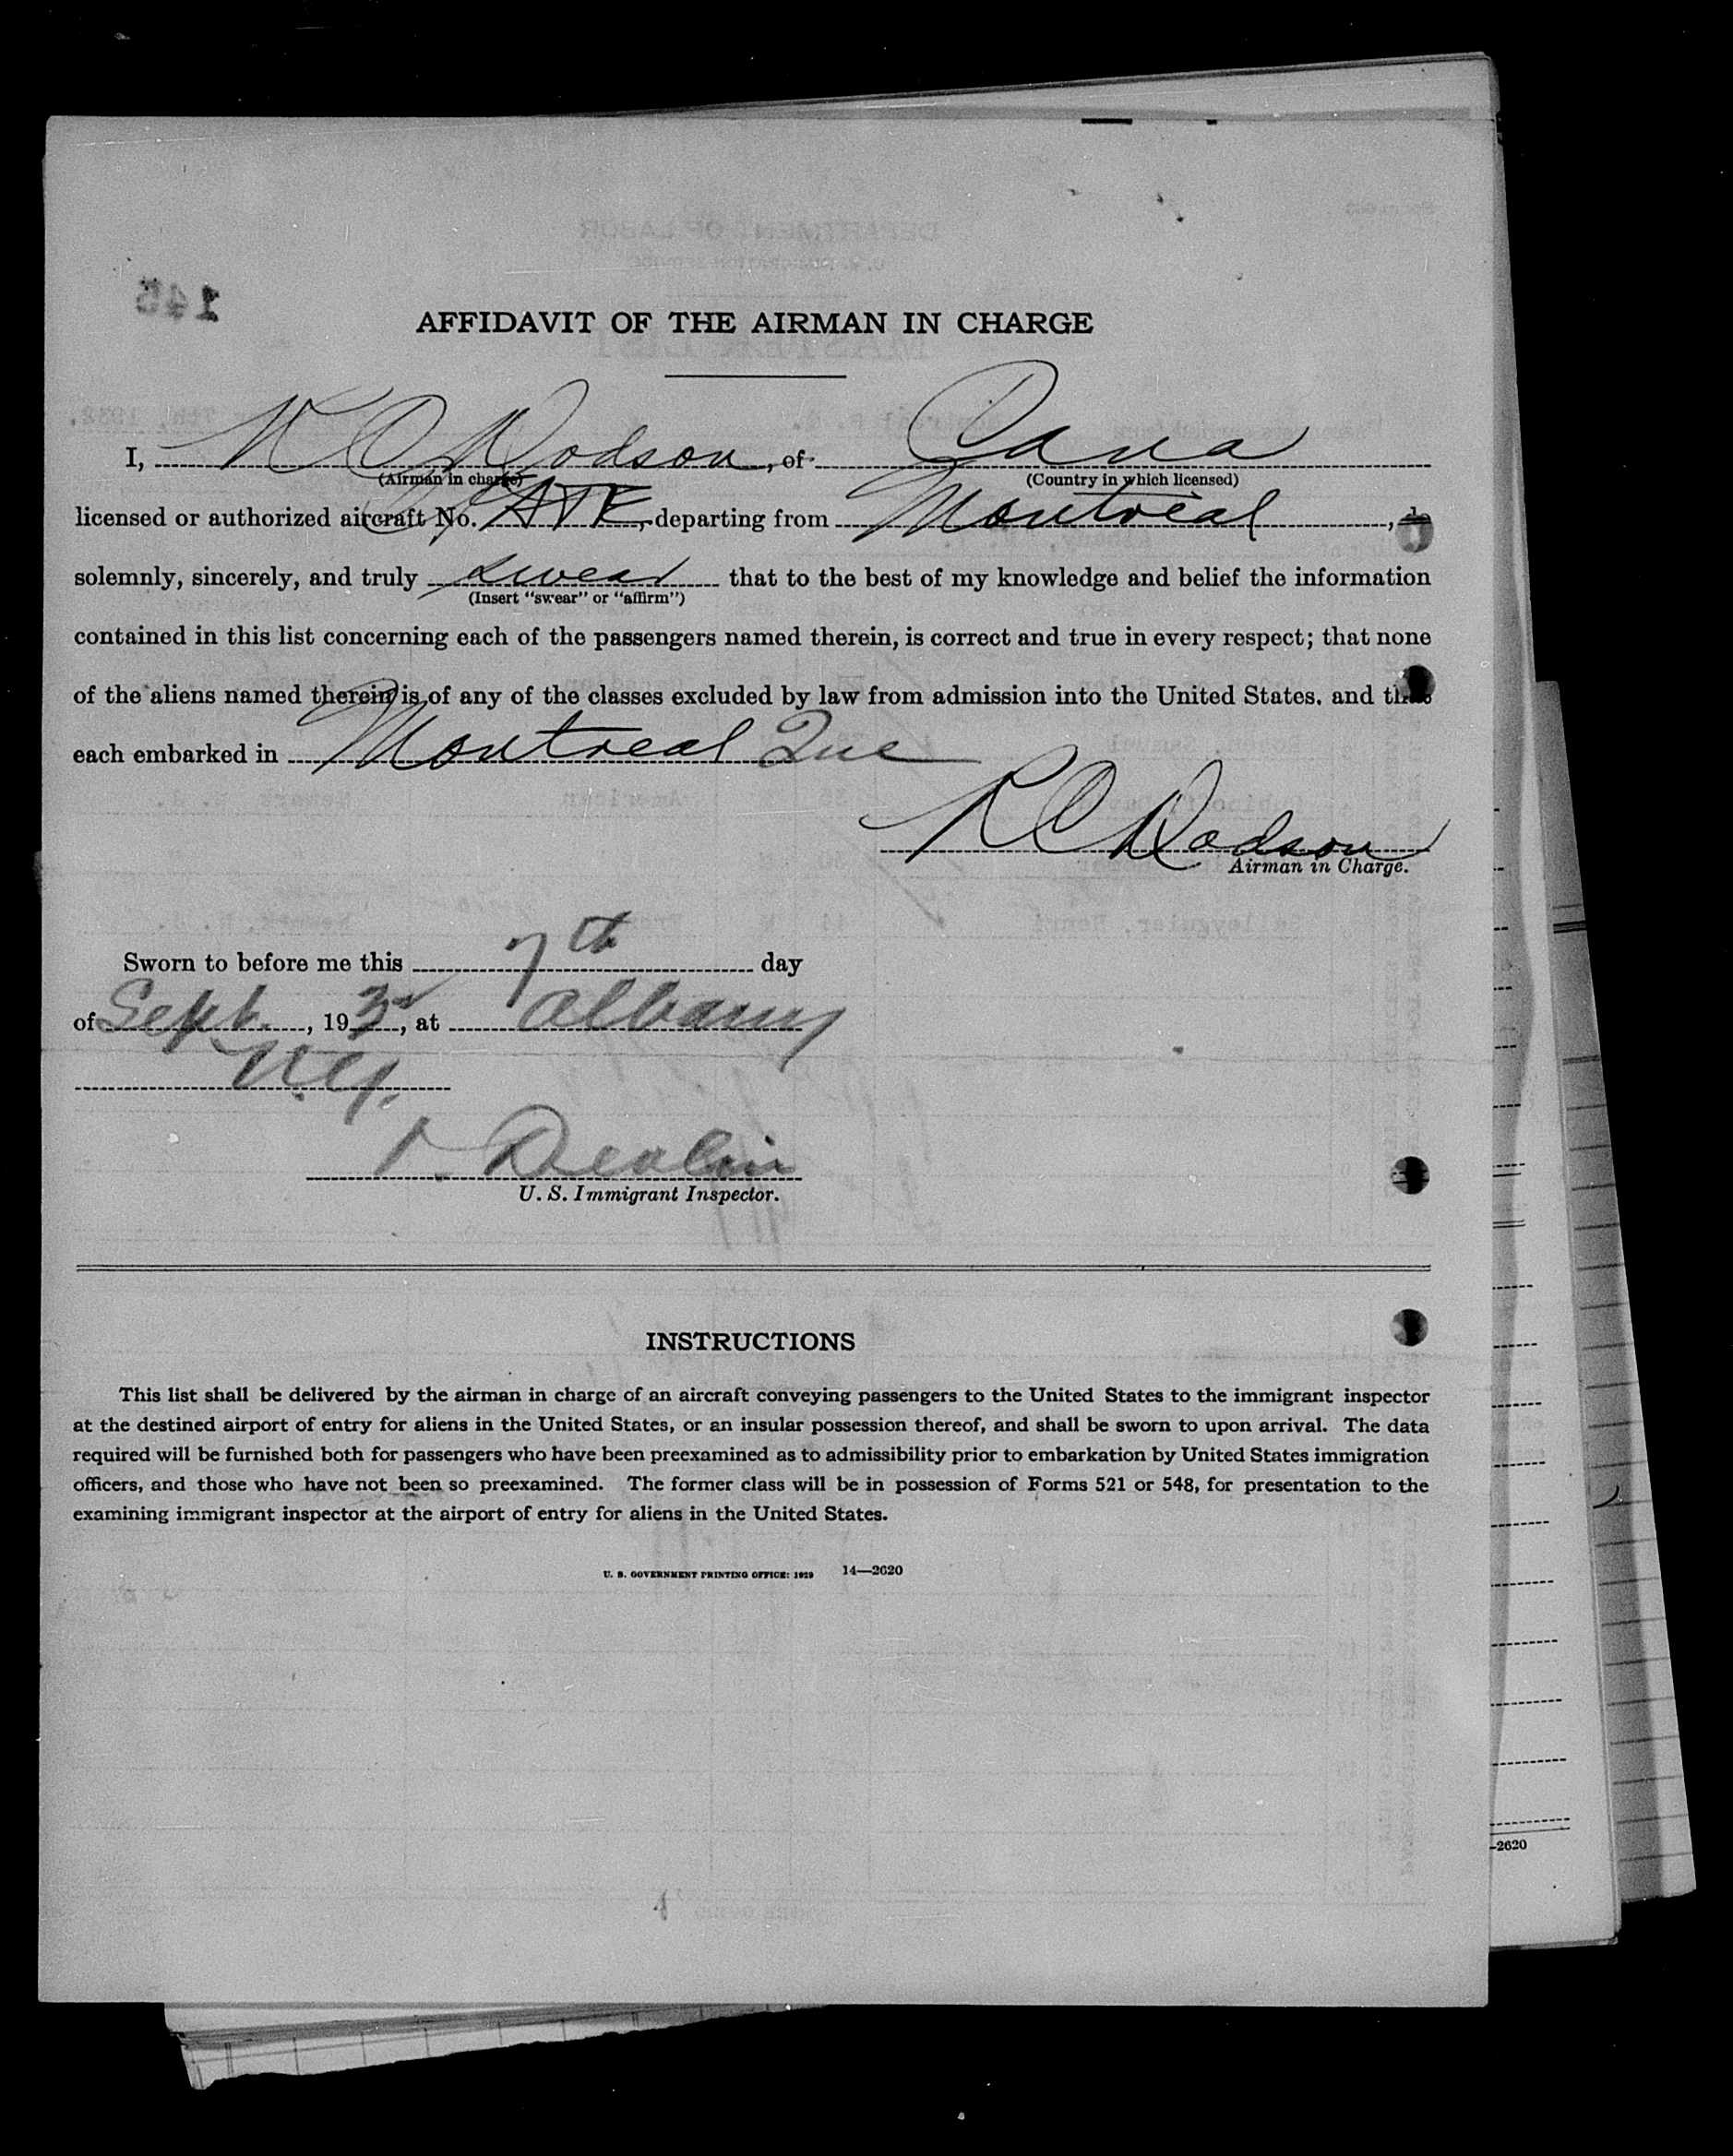 AFFIDAVIT OF THE AIRMAN IN CHARGE
I, Dodson, of Cana
(Airman in charge) (Country in which licensed)
licensed or authorized aircraft No. departing from Montreal, do
solemnly, sincerely, and truly swear that to the best of my knowledge and belief the information
(Insert "swear" or "affirm")
contained in this list concerning each of the passengers named therein, is correct and true in every respect; that none
of the aliens named therein is of any of the classes excluded by law from admission into the United States, and that
each embarked in Montreal Que
Dodson
Airman in Charge.
Sworn to before me this 7th day
of Sept., 193 , at Albany
N.Y.
Devlin
U. S. Immigrant Inspector.
INSTRUCTIONS
This list shall be delivered by the airman in charge of an aircraft conveying passengers to the United States to the immigrant inspector
at the destined airport of entry for aliens in the United States, or an insular possession thereof, and shall be sworn to upon arrival. The data
required will be furnished both for passengers who have been preexamined as to admissibility prior to embarkation by United States immigration
officers, and those who have not been so preexamined. The former class will be in possession of Forms 521 or 548, for presentation to the
examining immigrant inspector at the airport of entry for aliens in the United States.
U. S. GOVERNMENT PRINTING OFFICE: 1929 14—2620
-2620